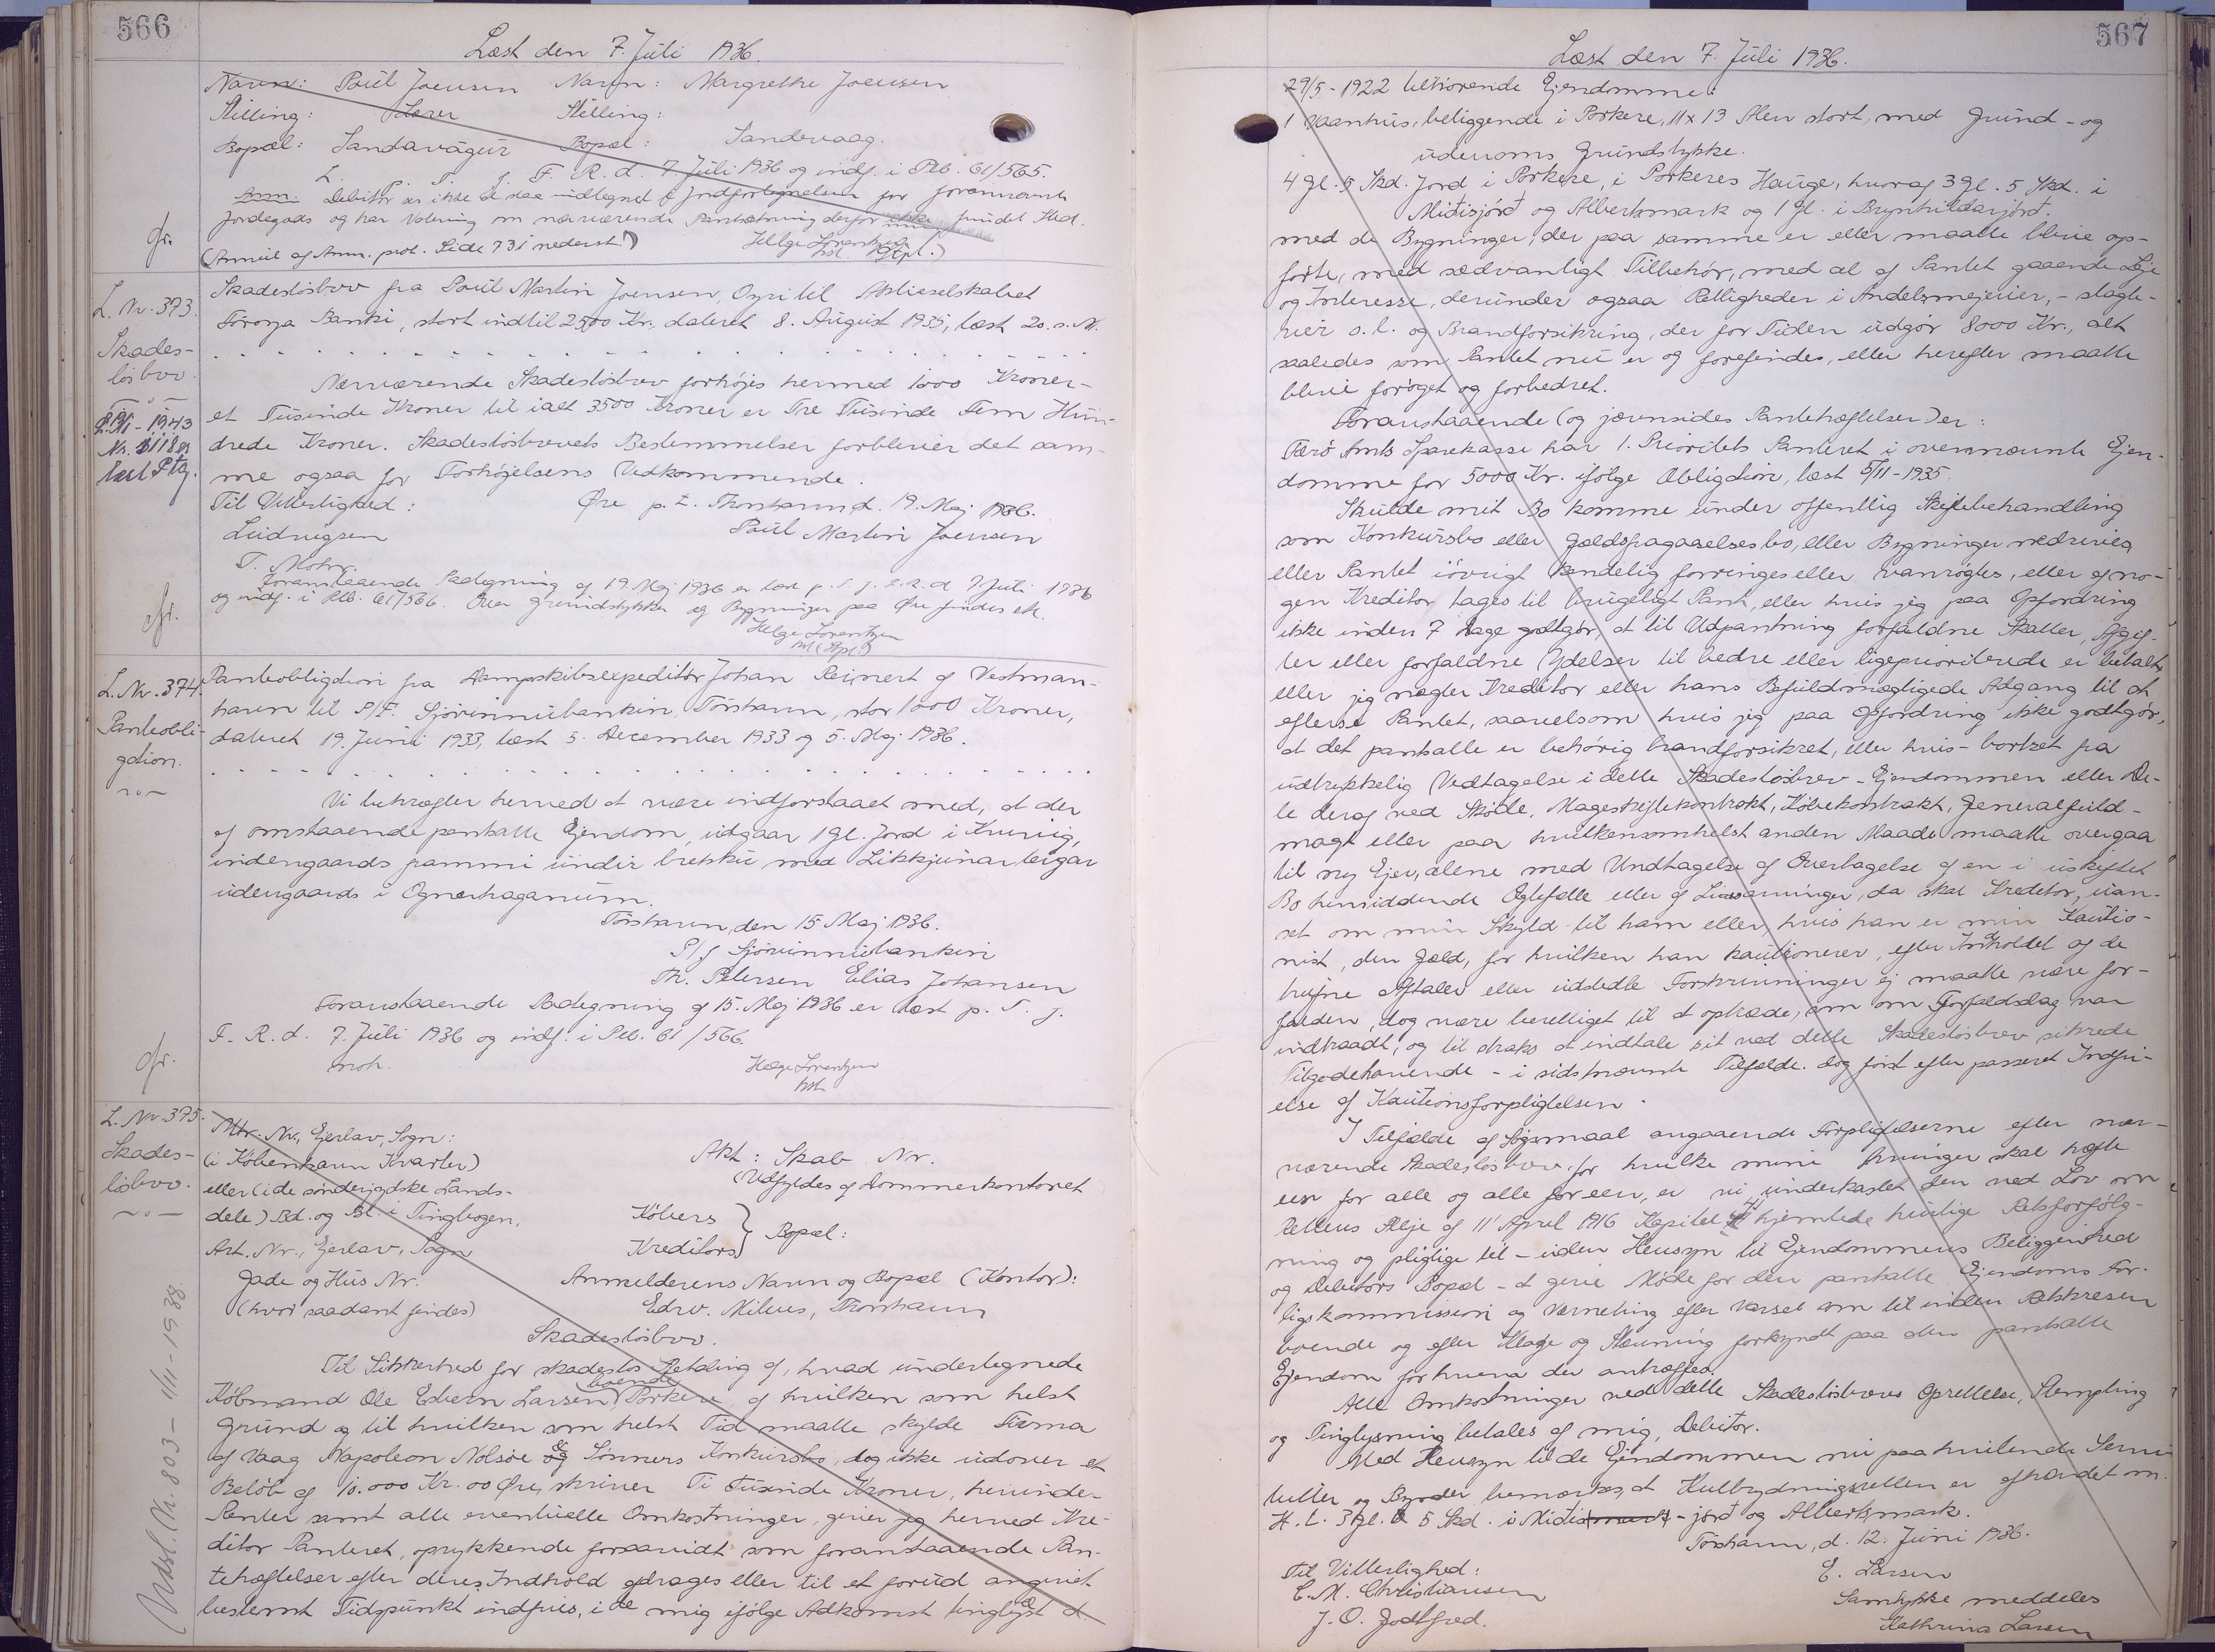 566
Læst den 7. Juli 1936.
Navn: Poul Joensen Navn: Margrethe Joensen
Stilling: Lærer Stilling:
Bopæl: Sandavágur Bopæl: Sandevaag.
L. p. T. f. F. R. d. 7. Juli 1936 og indf. i Ptb. 61/565.
Anm. Debitor er ikke at staa indtegnet i Jordfortegnelsen for forannævnte
Jordegods og har Notering om nærværende Pantsætning derfor ikke fundet Sted.
(Anneil af Anm. prot. Side 731 nederst!) Helge Lorentzen
kst. (Stpl.)
cfr.
L. Nr. 373.
Skades-
løsbrev.
Nr. 1118 er
læst Ptg.
Skadesløsbrev fra Poul Martin Joensen, Oyri til Aktieselskabet
Føroya Banki, stort indtil 2500 Kr., dateret 8. August 1935, læst 20. s. M.
Nærværende Skadesløsbrev forhøjes hermed 1000 Kroner -
et Tusinde Kroner til ialt 3500 Kroner er Tre Tusinde Fem Hun-
drede Kroner. Skadesløsbrevets Bestemmelser forbliver det sam-
me ogsaa for Forhøjelsens Vedkommende.
Til Vitterlighed: Øre p. t. Thorshavn d. 19. Maj 1936.
Ludvigsen Poul Martin Joensen
T. Mohr.
Foranstaaende Paategning af 19. Maj 1936 er læst p. T. f. F. R. d. 7. Juli 1936
og indf. i Ptb. 61/566. Over Grundstykke og Bygninger paa Øre findes ett.
Helge Lorentzen
kst. (Stpl.)
cfr.
L. Nr. 374.
Panteobli-
gation.
Panteobligation fra Dampskibsexpeditør Johan Reinert af Vestman-
havn til P/F. Sjóvinnubankin, Tórshavn, stor 1000 Kroner,
dateret 19. Juni 1933, læst 5. December 1933 og 5. Maj 1936.
Vi bekræfter herved at være indforstaaet med, at der
af omstaaende pantsatte Ejendom, udgaar 1 Gl. Jord i Kruvig,
indengaards frammi undir brekku med Likkjunar teigar
udengaards i Ognarhaganum.
Tórshavn, den 15 Maj 1936.
P/f Sjóvinnubankin
Th. Petersen Elias Johansen
Foranstaaende Paategning af 15. Maj 1936 er læst p. T. f.
F. R. d. 7. Juli 1936 og indf. i Ptb. 61/566.
Helge Lorentzen
kst.
cfr.
L. Nr. 375.
Skades-
løsbrev.
Udsl. Nr. 803 - 1/11 - 1938
Mtr. Nr., Ejerlav, Sogn:
(i København Kvarter) Akt: Skab Nr.
eller (i de sønderjydske Lands- (Udfyldes af Dommerkontoret
dele) Bd. og Bl. i Tingbogen, Købers
Art. Nr., Ejerlav, Sogn Kreditors } Bopæl:
Gade og Hus Nr. Anmelderens Navn og Bopæl (Kontor):
(hvor saadant findes) Edw. Mitens, Thorshavn
Skadesløsbrev.
Til Sikkerhed for skadesløs Betaling af, hvad undertegnede
Købmand Ole Edvern Larsen, boende Porkere, af hvilken som helst
Grund og til hvilken som helst Tid maatte skylde Firma
af Vaag Napoleon Nolsøe & Sønners Konkursbo, dog ikke udover et
Beløb af 10.000 Kr. 00 Øre, skriver Ti Tusinde Kroner, herunder
Renter samt alle eventuelle Omkostninger, giver jeg herved Kre-
ditor Panteret, oprykkende forsaavidt som foranstaaende Pan-
tehæftelser efter deres Indhold afdrages eller til et forud angivet
bestemt Tidspunkt indfries, i de mig ifølge Adkomst tinglæst d.
567
Læst den 7. Juli 1936.
29/5 - 1922 tilhørende Ejendomme:
1 Vaanhus, beliggende i Porkere, 11 x 13 Alen stort, med Grund - og
udenoms Grundstykke.
4 Gl. 5 Skd. Jord i Porkere, i Porkeres Hauge, hvoraf 3 Gl. 5 Skd. i
Miðisjørð og Albertsmark og 1 Gl. i Brynhildarjørð.
med de Bygninger, der paa samme er eller maatte blive op-
førte, med sædvanligt Tilbehør, med al af Pantet gaaende Leje
og Interesse, derunder ogsaa Rettigheder i Andelsmejerier, - slagte-
rier o. l. og Brandforsikring, der for Tiden udgør 8000 Kr., alt
saaledes som Pantet nu er og forefindes, eller herefter maatte
blive forøget og forbedret.
Foranstaaende (og jævnsides Pantehæftelser) er:
Færø Amts Sparekasse har 1. Prioritets Panteret i ovennævnte Ejen-
domme for 5000 Kr. ifølge Obligation, læst 5/11 - 1935.
Skulde mit Bo komme under offentlig Skiftebehandling
som Konkursbo eller Gældsfragaaelsesbo, eller Bygninger nedrives
eller Pantet iøvrigt kendelig forringes eller vanrøgtes, eller af no-
gen Kreditor tages til brugeligt Pant, eller hvis jeg paa Opfordring
ikke inden 7 Dage godtgør, at til Udpantning forfaldne Skatter, Afgif-
ter eller forfaldne Ydelser til bedre eller ligeprioriterede er betalt,
eller jeg nægter Kreditor eller hans Befuldmægtigede Adgang til at
efterse Pantet, saavelsom hvis jeg paa Opfordring ikke godtgør,
at det pantsatte er behørig brandforsikret, eller hvis - bortset fra
udtrykkelig Vedtagelse i dette Skadesløsbrev - Ejendommen eller De-
le deraf ved Skøde, Mageskiftekontrakt, Købekontrakt, Generalfuld-
magt eller paa hvilkensomhelst anden Maade maatte overgaa
til ny Ejer, alene med Undtagelse af Overtagelse af en i uskiftet
Bo hensiddende Ægtefælle eller af Livsarvinger, da skal Kreditor, uan-
set om min Skyld til ham eller, hvis han er min Kautio-
nist, den Gæld, for hvilken han kautionerer, efter Indholdet af de
trufne Aftaler eller udstedte Forskrivninger ej maatte være for-
falden, dog være berettiget til at optræde, som om Forfaldsdag var
indtraadt, og til straks at indtale sit ved dette Skadesløsbrev sikrede
Tilgodehavende - i sidstnævnte Tilfælde dog først efter passeret Indfri-
else af Kautionsforpligtelsen.
I Tilfælde af Søgsmaal angaaende Forpligtelserne efter nær-
værende Skadesløsbrev, for hvilke mine Arvinger skal hæfte
een for alle og alle for een, er vi underkastet den ved Lov om
Rettens Pleje af 11' April 1916 Kapitel 41 hjemlede hurtige Retsforfølg-
ning og pligtige til - uden Hensyn til Ejendommens Beliggenhed
og Debitors Bopæl - at give Møde for den pantsatte Ejendoms For-
ligskommission og Værneting efter Varsel som til inden Retskresen
boende og efter Klage og Stævning forkyndt paa den pantsatte
Ejendom for hvem der antræffes.
Alle Omkostninger ved dette Skadesløsbrevs Oprettelse, Stempling
og Tinglysning betales af mig, Debitor.
Med Hensyn til de Ejendommen nu paahvilende Servi-
tutter og Byrder bemærkes, at Kulbrydningsretten er afhændet m.
H. t. 3 Gl. 5 Skd. i Miðis - jørð og Albertsmark.
Tórshavn, d. 12. Juni 1936.
Til Vitterlighed: E. Larsen
C. M. Christiansen Samtykke meddeles
J. O. Godtfred. Kathrina Larsen